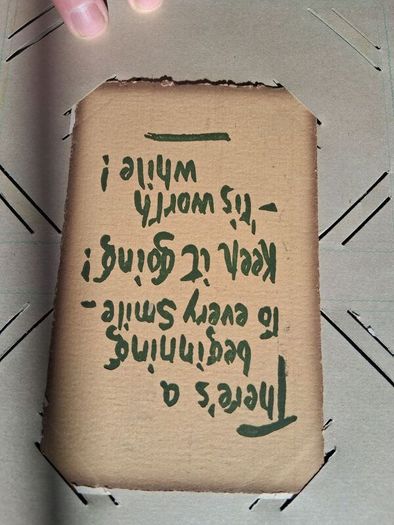 There's a
beginning
To every smile -
Keep it going!
- 'Tis worth
while!